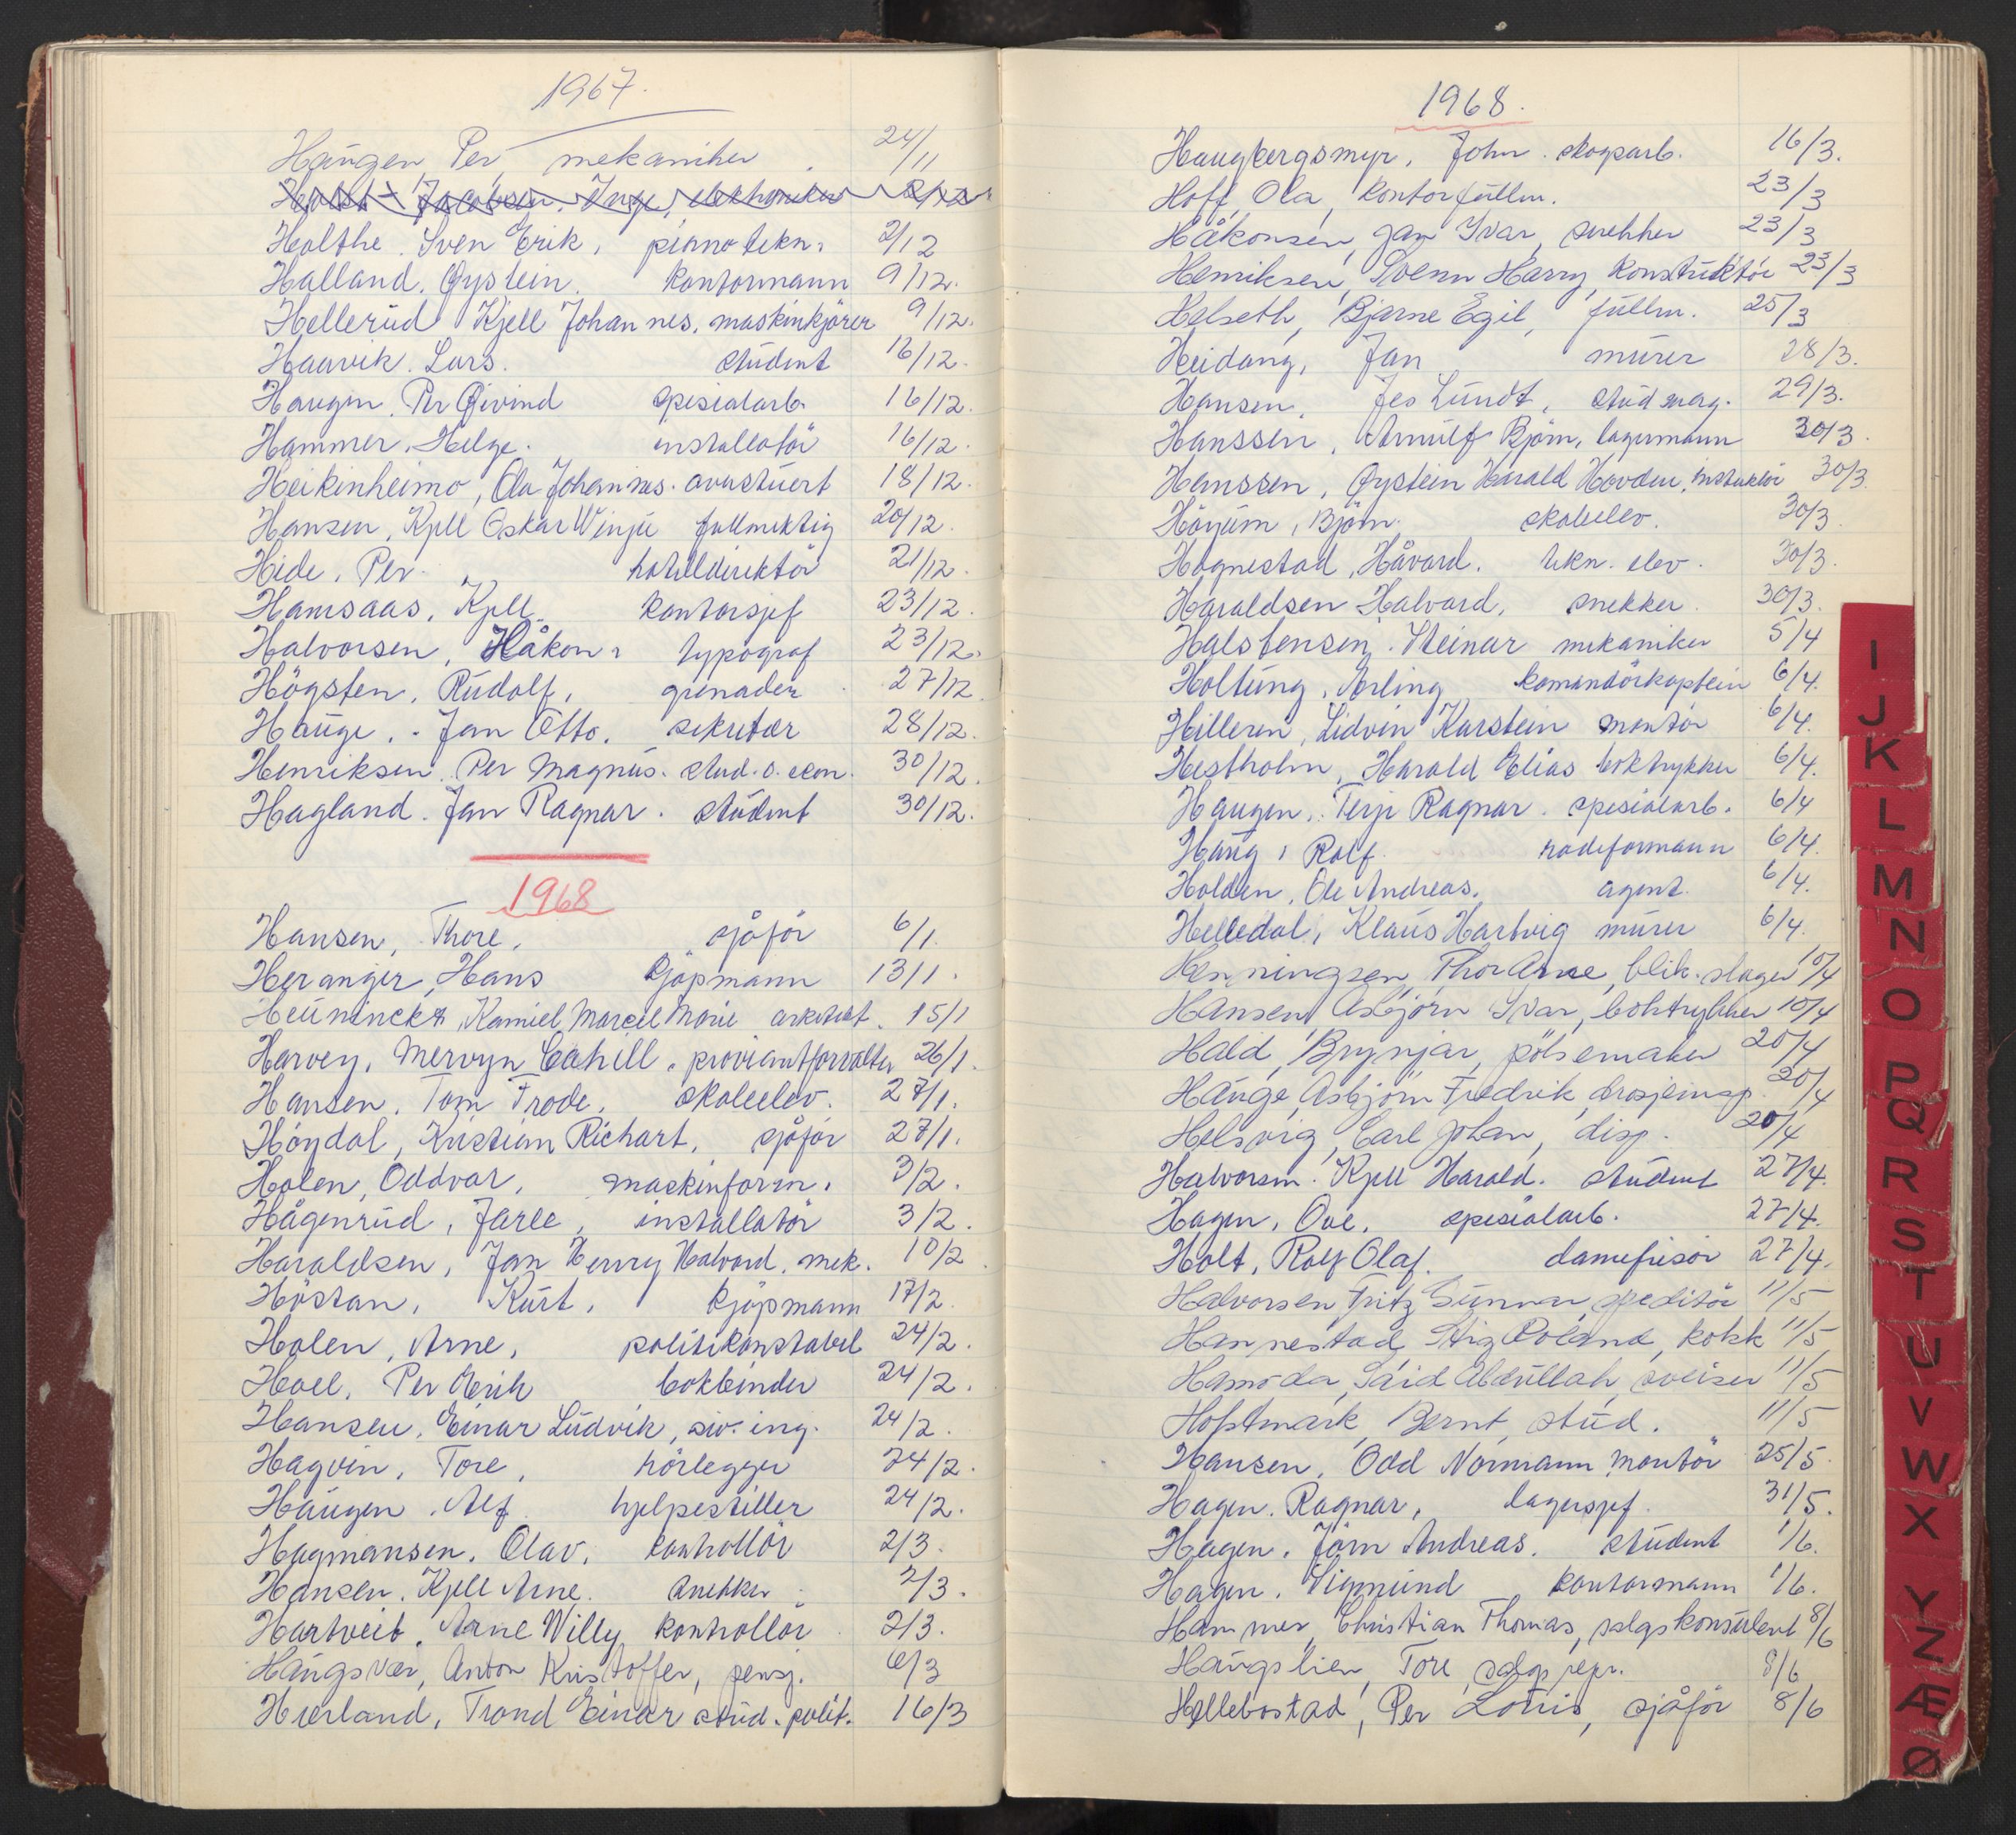 1967.
Haugen Per, mekaniker . 24/11
Holst-Jacobsen, Inge, elektroniker 2/12
Holthe. Sven Erik, pianotekn. 2/12
Halland, Øystein. Kontormann 9/12.
Hellerud Kjell Johannes, maskinkjörer 9/12.
Haavik. Lars. student 16/12.
Haugen, Per Øivind spesialarb. 16/12.
Hammer, Helge. installatör 16/12.
Heikinheimo, Ola Johannes. avustuert 18/12.
Hansen, Kjell Oskar Winju fullmektig 20/12.
Hide, Per. hotelldirektör 21/12.
Hamsaas, Kjell kontorsjef 23/12.
Halvorsen, Håkon, typograf 23/12.
Högsten, Rudolf, grenader 27/12.
Hauge, Jan Otto. sekretær 28/12.
Henriksen. Per Magnus. stud. o. econ. 30/12.
Hagland. Jan Ragnar. student 30/12.
1968
Hansen, Thore, sjåför 6/1.
Heranger, Hans Kjöpmann 13/1.
Heuninckx, Kamiel Marcel Marie arkitekt. 15/1
Harvey, Mervyn Cahill. proviantforvalter 26/1.
Hansen, Tom Frode, skoleelev. 27/1.
Höydal, Kristian Richart, sjåför 27/1.
Holen, Oddvar, maskinform. 3/2.
Hågenrud, Jarle, installatör 3/2.
Haraldsen, Jan Henry Halvard, mek. 10/2.
Höstan, Kurt, Kjöpmann 17/2.
Holen, Arne, politikonstabel 24/2.
Hoel, Per Erik bokbinder 24/2.
Hansen, Einar Ludvik, siv. ing. 24/2.
Hagvin, Tore, rörlegger 24/2.
Haugen, Alf hjelpestiller 24/2.
Hagmansen, Olav, kontrollör 2/3.
Hansen, Kjell Arne. snekker 2/3.
Hartveit, Arne Willy kontrollör 2/3.
Haugsvær, Anton Kristoffer, pensj. 6/3
Hærland, Trond Einar stud. polit. 16/3
1968.
Haugbergsmyr, John. skogsarb. 16/3.
Hoff, Ola, Kontorfullm. 23/3
Håkonsen, Jan Ivar, snekker 23/3
Henriksen, Svenn Harry, konstruktör 23/3
Helseth, Bjarne Egil, fullm. 25/3
Heidang, Jan murer 28/3.
Hansen, Jes Lundt, stud mag. 29/3.
Hanssen, Arnulf Björn, lagermann 30/3.
Hanssen, Øystein Harald Hovden, instruktör 30/3
Höyum, Björn. skoleelev. 30/3.
Hognestad, Håvard. tekn. elev. 30/3.
Haraldsen Halvard, snekker. 30/3.
Halstensen. Steinar mekaniker 5/4
Holtung, Arling komandörkaptein 6/4.
Hilleren, Lidvin Karstein montör 6/4.
Hestholm, Harald Elias boktrykker 6/4.
Haugen, Terje Ragnar. spesialarb. 6/4
Haug, Rolf rodeformann 6/4.
Holden, Ole Andreas. agent. 6/4.
Helledal, Klaus Hartvig murer 6/4.
Henningsen, Thor Arne, blik. slager 10/4
Hansen Asbjörn Ivar, boktrykker 10/4
Hald, Brynjar, pölsemaker 20/4
Hauge, Asbjörn Fredrik, drosjeinsp. 20/4
Helsvig, Carl Johan, disp. 20/4
Halvorsen. Kjell Harald. student 27/4.
Hagen, Ove, spesialarb. 27/4.
Holt, Rolf Olaf. damefrisör 27/4.
Halvorsen Fritz Gunnar, speditör 11/5
Hannestad, Stig Roland, kokk 11/5
Hamoda, Said Abdullah, sveiser 11/5
Hofstmark, Bernt, stud. 11/5
Hansen, Odd Normann montör 25/5.
Hagen. Ragnar, lagersjef. 31/5.
Hagen, Jörn Andreas. student 1/6.
Hagen, Sigmund kontormann 1/6.
Hammer, Christian Thomas, salgskonsulent 8/6
Haugslien, Tore, salgsrepr. 8/6
Hellebostad, Per Louis, sjåför 8/6
I
J
K
L
M
N
O
P
Q
R
S
T
U
V
W
X
Y
Z
Æ
Ø